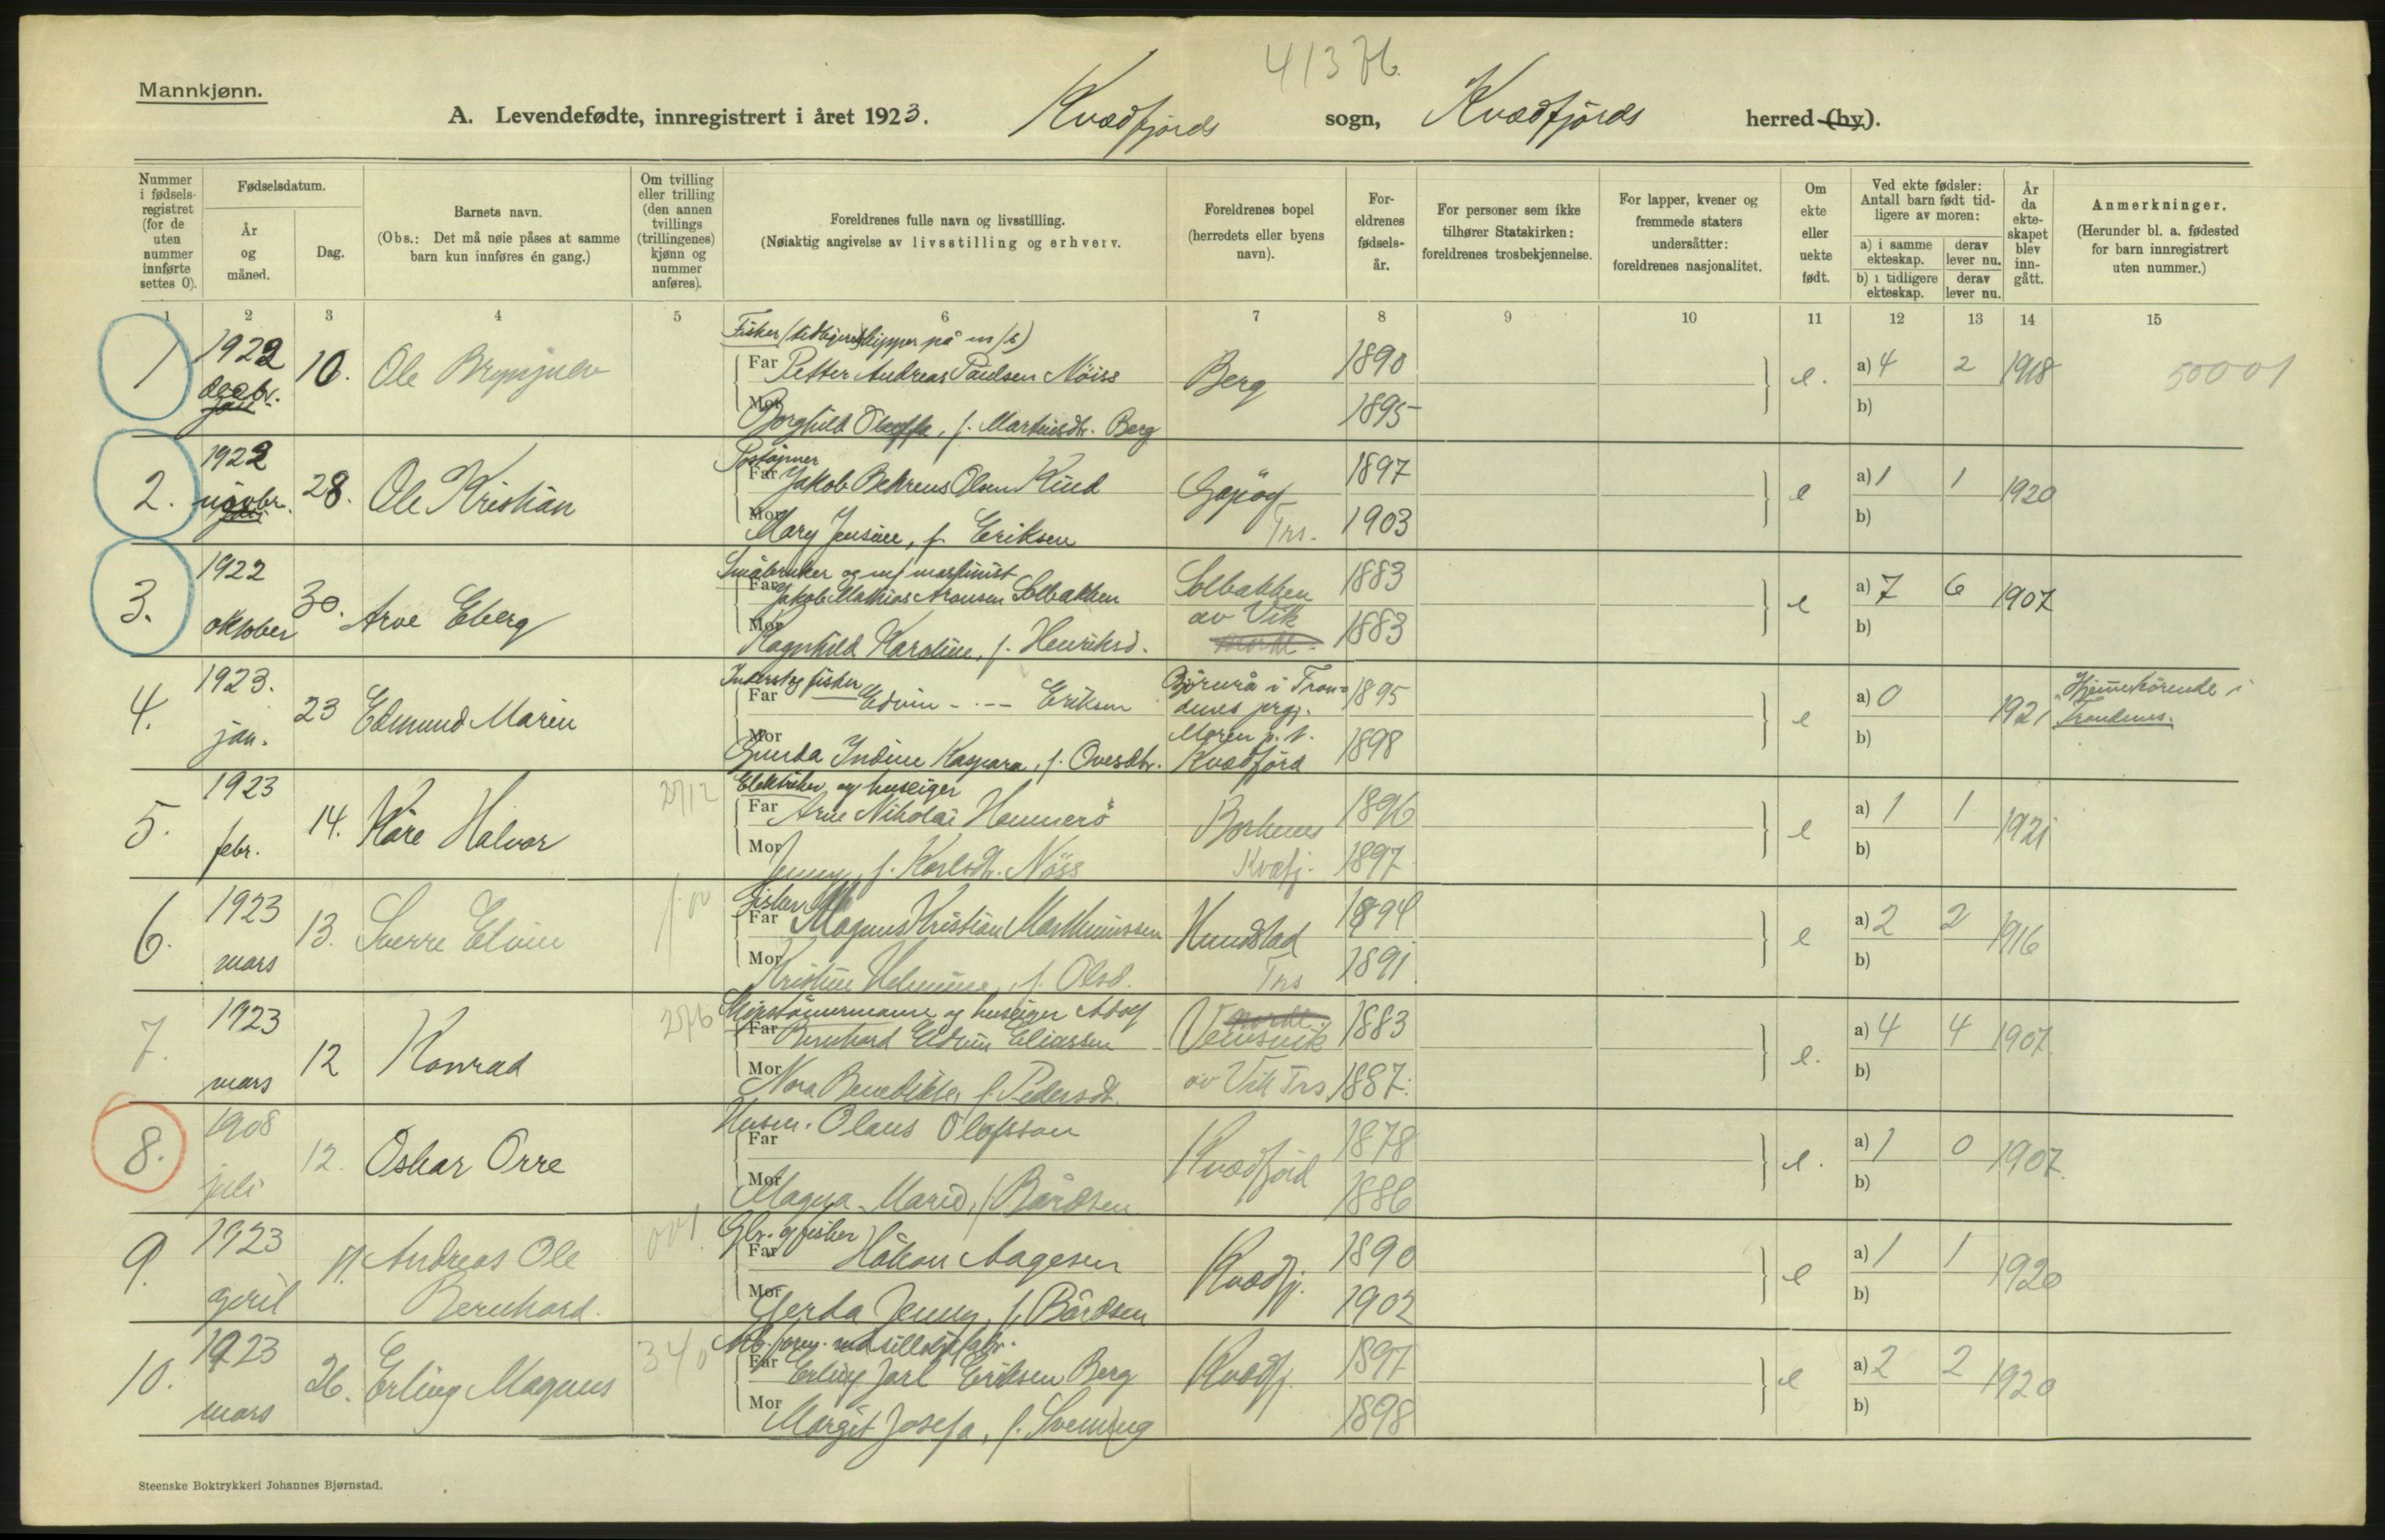 41376
Mannkjønn.
A. Levendefødte, innregistrert i året 1923. Kvædfjords sogn, Kvædfjords herred (by).
Nummer i fødselsregistret (for de uten nummer innførte settes 0).
Fødselsdatum.
År og måned.
Dag.
Barnets navn.
(Obs.: Det må nøie påses at samme barn kun innføres én gang.)
Om tvilling eller trilling (den annen tvillings (trillingenes) kjønn og nummer anføres).
Foreldrenes fulle navn og livsstilling.
(Nøiaktig angivelse av livsstilling og erhverv.
Foreldrenes bopel (herredets eller byens navn).
Foreldrenes fødselsår.
For personer som ikke tilhører Statskirken: foreldrenes trosbekjennelse.
For lapper, kvener og fremmede staters undersåtter: foreldrenes nasjonalitet.
Om ekte eller uekte født.
Ved ekte fødsler: Antall barn født tidligere av moren:
a) i samme ekteskap. derav lever nu.
b) i tidligere ekteskap. derav lever nu.
År da ekteskapet blev inngått.
Anmerkninger.
(Herunder bl. a. fødested for barn innregistrert uten nummer.)
1 2 3 4 5 6 7 8 9 10 11 12 13 14 15
Fisker (tidligere skipper på m/s)
1 1922 decbr. 10. Ole Brynjulv Far Petter Andreas Paulsen Nöiss Berg 1890 e. a) 4 2 1918 50001
Mor Borghild Oluffa, f. Martinsdtr. Berg 1895 b)
Poståpner
2. 1922 novbr. 28. Ole Kristian Far Jakob Behrens Olsen Kiil Gapöy 1897 e a) 1 1 1920
Mor Mary Jensine, f. Eriksen Trs. 1903 b)
Småbruker og m/ maskinist
3. 1922 oktober 30. Arve Eberg Far Jakob Mathias Aronsen Solbakken Solbakken av Vik 1883 e a) 7 6 1907
Mor Ragnhild Karoline, f. Henriksd. 1883 b)
Inderst og fisker
4. 1923. jan. 23 Edmund Marin Far Edvin - . -- Eriksen Björnrå i Trondenes prgj. 1895 e a) 0 1921 Hjemmehörende i Trondenes.
Mor Gunda Indine Kaspara, f. Ovesdtr. Moren p. t. Kvædfjord 1898 b)
Elektriker og huseiger
5. 1923 febr. 14. Kåre Halvor Far Arne Nikolai Hemmerö Borkenes 1896 e a) 1 1 1921
Mor Jenny, f. Karlsdtr. Nöss Kvæfj. 1897 b)
Fisker
6. 1923 mars 13. Sverre Elvin Far Magnus Kristian Marthinussen Hundstad 1894 e a) 2 2 1916
Mor Kristine Helmine, f. Olsd. Trs 1891 b)
7. 1923 mars 12 Konrad Far Bernhard Edvin Eliassen Veinsvik 1883 e. a) 4 4 1907
Mor Nora Benedikte, f. Pedersdt. av Vik Trs 1887. b)
8. 1908 juli 12. Oskar Orre Husm. Olaus Olafsson Kvædfjord 1878 e. a) 1 0 1907.
Far
Mor Magna Marie, f. Bårdsen 1886 b)
Gbr. og fisker
9. 1923 april Andreas Ole Bernhard. Far Håkon Aagesen Kvædfj. 1890 e a) 1 1 1920
Mor Gerda Jenny, f. Bårdsen 1902 b)
Arb.form. ved sildoljefabr.
10. 1923 mars 26. Erling Magnus 340 Far Erling Jarl Eriksen Berg Kvædfj. 1897 e a) 2 2 1920
Mor Margit Josefa, f. Svenning 1898 b)
Steenske Boktrykkeri Johannes Bjørnstad.